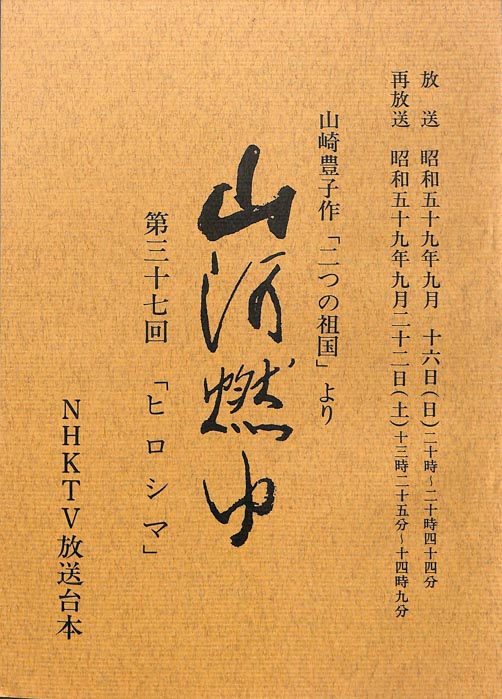 放　送　昭和五十九年九月　十六日(日)二十時〜二十時四十四分
再放送　昭和五十九年九月二十二日(土)十三時二十五分〜十四時九分
山崎豊子作「二つの祖国」より
山河燃ゆ
第三十七回　「ヒロシマ」
NHKTV放送台本